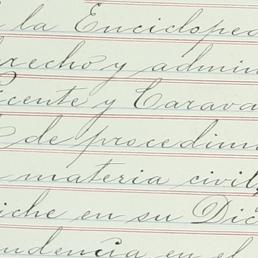 la Encicloped
recho y admin
icente y Carava
de procedimi
materia civil,
iche en su Dic
udencia en el